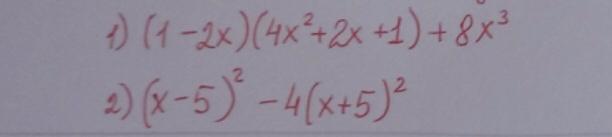 1) (1-2x)(4x²+2x+1)+8x³
2) (x-5)²-4(x+5)²